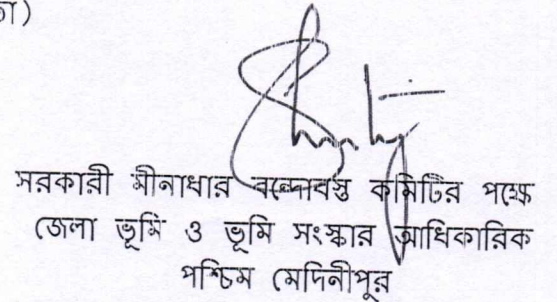 তা)
সরকারী মীনাধার বন্দোবস্ত কমিটির পক্ষে
জেলা ভূমি ও ভূমি সংস্কার আধিকারিক
পশ্চিম মেদিনীপুর